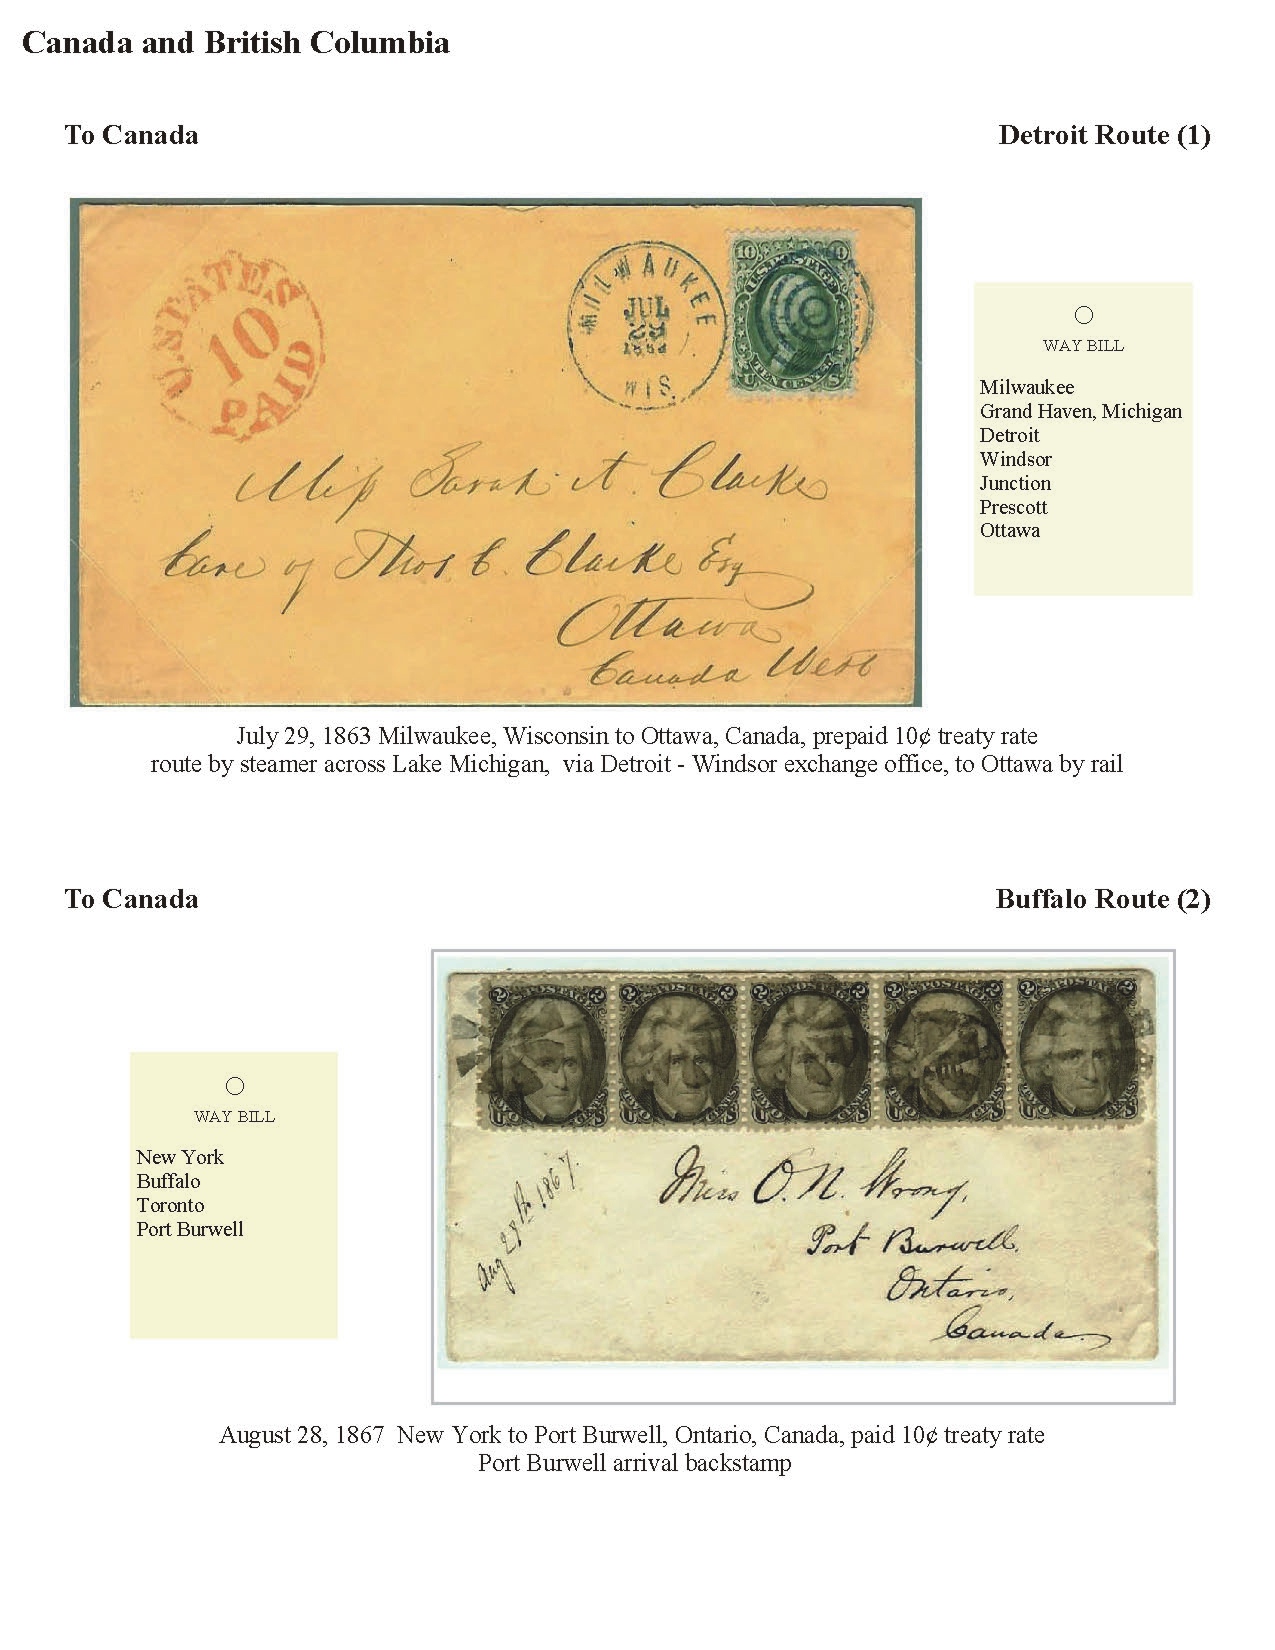 Canada and British Columbia
To Canada
Detroit Route (1)
U.STATES
10
PAID
MILWAUKEE
JUL
29
WIS.
10
U.S. POSTAGE
TEN CENTS
U S
Miss Sarah A. Clarke
Care of Thos C. Clarke Esq
Ottawa
Canada West
WAY BILL
Milwaukee
Grand Haven, Michigan
Detroit
Windsor
Junction
Prescott
Ottawa
July 29, 1863 Milwaukee, Wisconsin to Ottawa, Canada, prepaid 10¢ treaty rate
route by steamer across Lake Michigan,  via Detroit - Windsor exchange office, to Ottawa by rail
To Canada
Buffalo Route (2)
WAY BILL
New York
Buffalo
Toronto
Port Burwell
Aug 28th 1867.
Miss O. N. Wrong,
Port Burwell,
Ontario,
Canada.
August 28, 1867  New York to Port Burwell, Ontario, Canada, paid 10¢ treaty rate
Port Burwell arrival backstamp